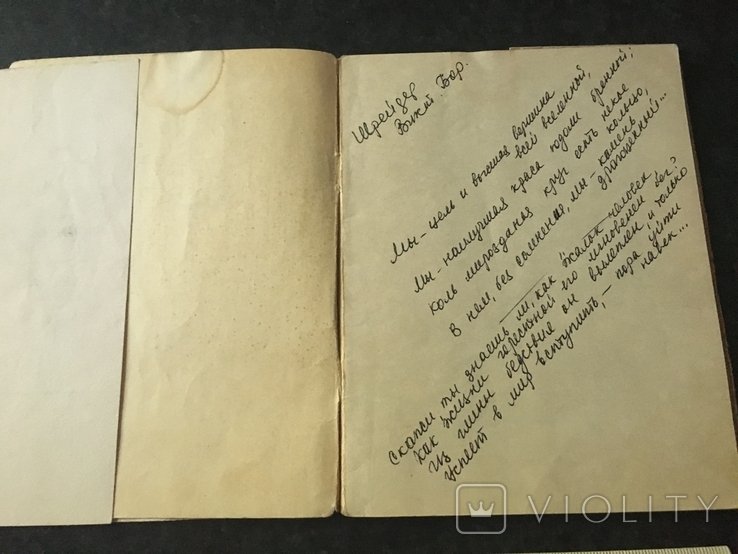 Шрейдер
Викт. Бор.
Мы - цель и высшая вершина
всей вселенной,
Мы - наилучшая краса юдоли бренной;
Коль мирозданья круг есть некое
кольцо,
В нем, без сомненья, мы - камень
драгоценный...
Скажи ты знаешь ли, как жалок человек
Как жизни горестной его мгновенен бег?
Из глины бедствие он вылеплен, и только
Успеет в мир вступить, - пора уйти
навек...
VIOLITY